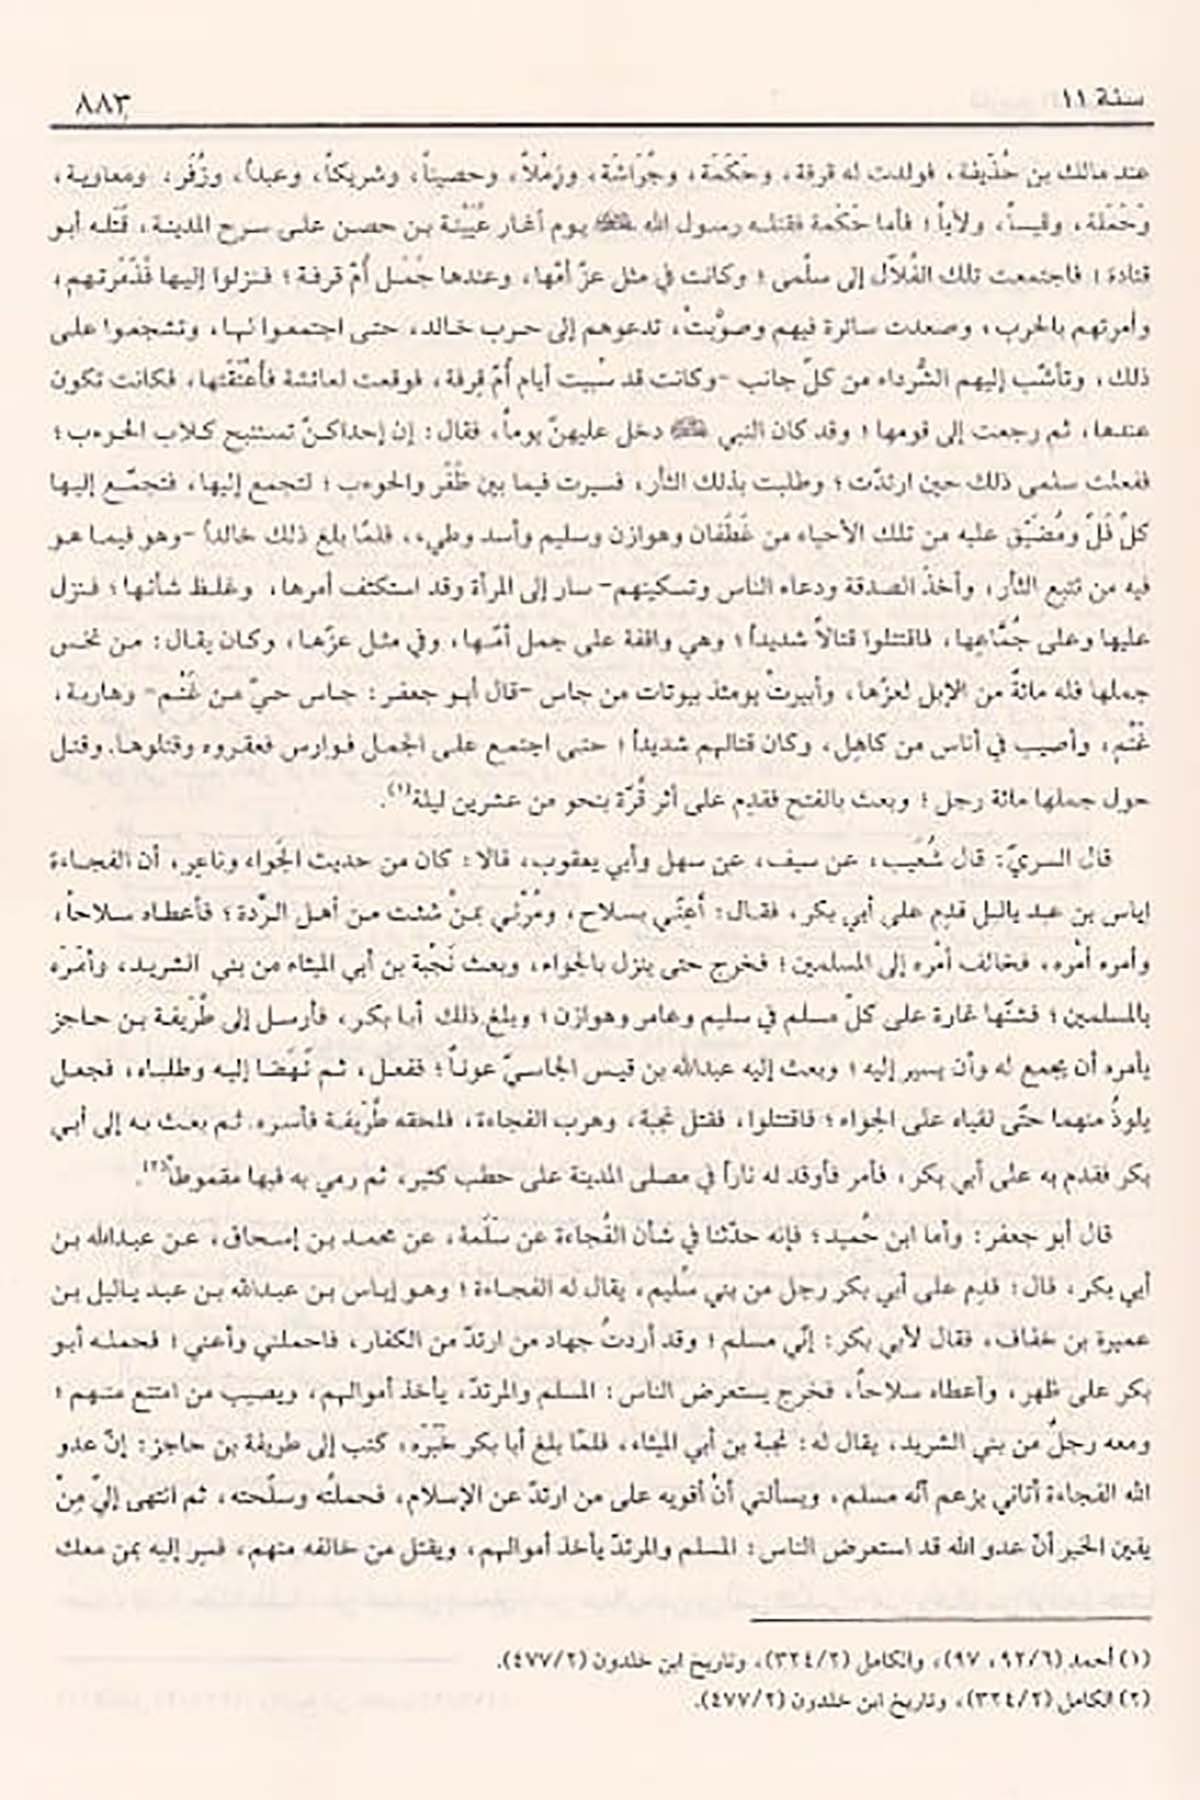 سنة ١١
٨٨٣
عند مالك بن حُذَيفة، فولدت له قرفة، وحَكَمَة، وجُرَاشَة، وزِمْلاً، وحصيناً، وشريكاً، وعبداً، وزُفَر، ومعاوية،
وحَمَلة، وقيساً، ولأياً؛ فأما حَكَمة فقتله رسول الله ﷺ يوم أغار عُيَيْنة بن حصن على سرح المدينة، قَتَله أبو
قتادة؛ فاجتمعت تلك الفُلاّل إلى سلْمى؛ وكانت في مثل عزّ أمّها، وعندها جَمَل أُمّ قرفة؛ فنزلوا إليها فذَمَرتهم،
وأمرتهم بالحرب، وصعدت سائرة فيهم وصوَّبتْ، تدعوهم إلى حرب خالد، حتى اجتمعوا لها، وتشجعوا على
ذلك، وتأشّب إليهم الشُّرداء من كلّ جانب -وكانت قد سُبيت أيام أُمّ قِرفة، فوقعت لعائشة فأعْتَقَتْها، فكانت تكون
عندها، ثم رجعت إلى قومها؛ وقد كان النبي ﷺ دخل عليهنّ يوماً، فقال: إن إحداكنّ تستنبح كلاب الحوءب؛
ففعلت سلمى ذلك حين ارتدّت؛ وطلبت بذلك الثأر، فسيرت فيما بين ظَفَر والحوءب؛ لتجمع إليها، فتجمّع إليها
كلّ فَلّ ومُضَيَّق عليه من تلك الأحياء من غَطَفان وهوازن وسليم وأسد وطيء، فلمّا بلغ ذلك خالداً -وهو فيما هو
فيه من تتبع الثأر، وأخذ الصدقة ودعاء الناس وتسكينهم- سار إلى المرأة وقد استكثف أمرها، وغلظ شأنها؛ فنزل
عليها وعلى جُمَّاعِها، فاقتتلوا قتالاً شديداً؛ وهي واقفة على جمل أمّها، وفي مثل عزّها، وكان يقال: من نخس
جملها فله مائةٌ من الإبل لعزّها، وأبيرتْ يومئذ بيوتات من جاس -قال أبو جعفر: جاس حيّ من غَنْم- وهاربة،
غَنْم، وأصيب في أناس من كاهِل، وكان قتالهم شديداً؛ حتى اجتمع على الجمل فوارس فعقروه وقتلوها. وقتل
حول جملها مائة رجل؛ وبعث بالفتح فقدِم على أثر قُرّة بنحو من عشرين ليلة(١).
قال السريّ: قال شُعَيب، عن سيف، عن سهل وأبي يعقوب، قالا: كان من حديث الجَواء وناعِر، أن الفجاءة
إياس بن عبد ياليل قدِم على أبي بكر، فقال: أعِنّي بسلاح، ومُرْني بمنْ شئت من أهل الرِّدة؛ فأعطاه سلاحاً،
وأمره أمْره، فخالف أمْره إلى المسلمين؛ فخرج حتى ينزل بالجواء، وبعث نَجْبة بن أبي الميثاء من بني الشريد، وأمَرَه
بالمسلمين؛ فشنّها غارة على كلّ مسلم في سليم وعامر وهوازن؛ وبلغ ذلك أبا بكر، فأرسل إلى طُرَيفة بن حاجز
يأمره أن يجمع له وأن يسير إليه؛ وبعث إليه عبدالله بن قيس الجاسيّ عوناً؛ ففعل، ثم نَهَضا إليه وطلباه، فجعل
يلوذُ منهما حتّى لقياه على الجواء؛ فاقتتلوا، فقتل نجبة، وهرب الفجاءة، فلحقه طُرَيفة فأسره. ثم بعث به إلى أبي
بكر فقدم به على أبي بكر، فأمر فأوقد له ناراً في مصلى المدينة على حطب كثير، ثم رمي به فيها مقموطاً(٢).
قال أبو جعفر: وأما ابن حُميد؛ فإنه حدّثنا في شأن الفُجاءة عن سَلَمة، عن محمد بن إسحاق، عن عبدالله بن
أبي بكر، قال: قدِم على أبي بكر رجل من بني سُليم، يقال له الفجاءة؛ وهو إياس بن عبدالله بن عبد ياليل بن
عميرة بن خفاف، فقال لأبي بكر: إنّي مسلم؛ وقد أردتُ جهاد من ارتدّ من الكفار، فاحملني وأعني؛ فحمله أبو
بكر على ظهر، وأعطاه سلاحاً، فخرج يستعرض الناس: المسلم والمرتدّ، يأخذ أموالهم، ويصيب من امتنع منهم؛
ومعه رجلٌ من بني الشريد، يقال له: نجبة بن أبي الميثاء، فلمّا بلغ أبا بكر خَبَرَه، كتب إلى طريفة بن حاجز: إنّ عدو
الله الفجاءة أتاني يزعم أنّه مسلم، ويسألني أنْ أقويه على من ارتدّ عن الإسلام، فحملتُه وسلّحته، ثم انتهى إليّ مِنْ
يقين الخبر أنّ عدو الله قد استعرض الناس: المسلم والمرتدّ يأخذ أموالهم، ويقتل من خالفه منهم، فسِر إليه بمن معك
(١) أحمد (٩٢/٦، ٩٧)، والكامل (٣٢٤/٢)، وتاريخ ابن خلدون (٤٧٧/٢).
(٢) الكامل (٣٢٤/٢)، وتاريخ ابن خلدون (٤٧٧/٢).